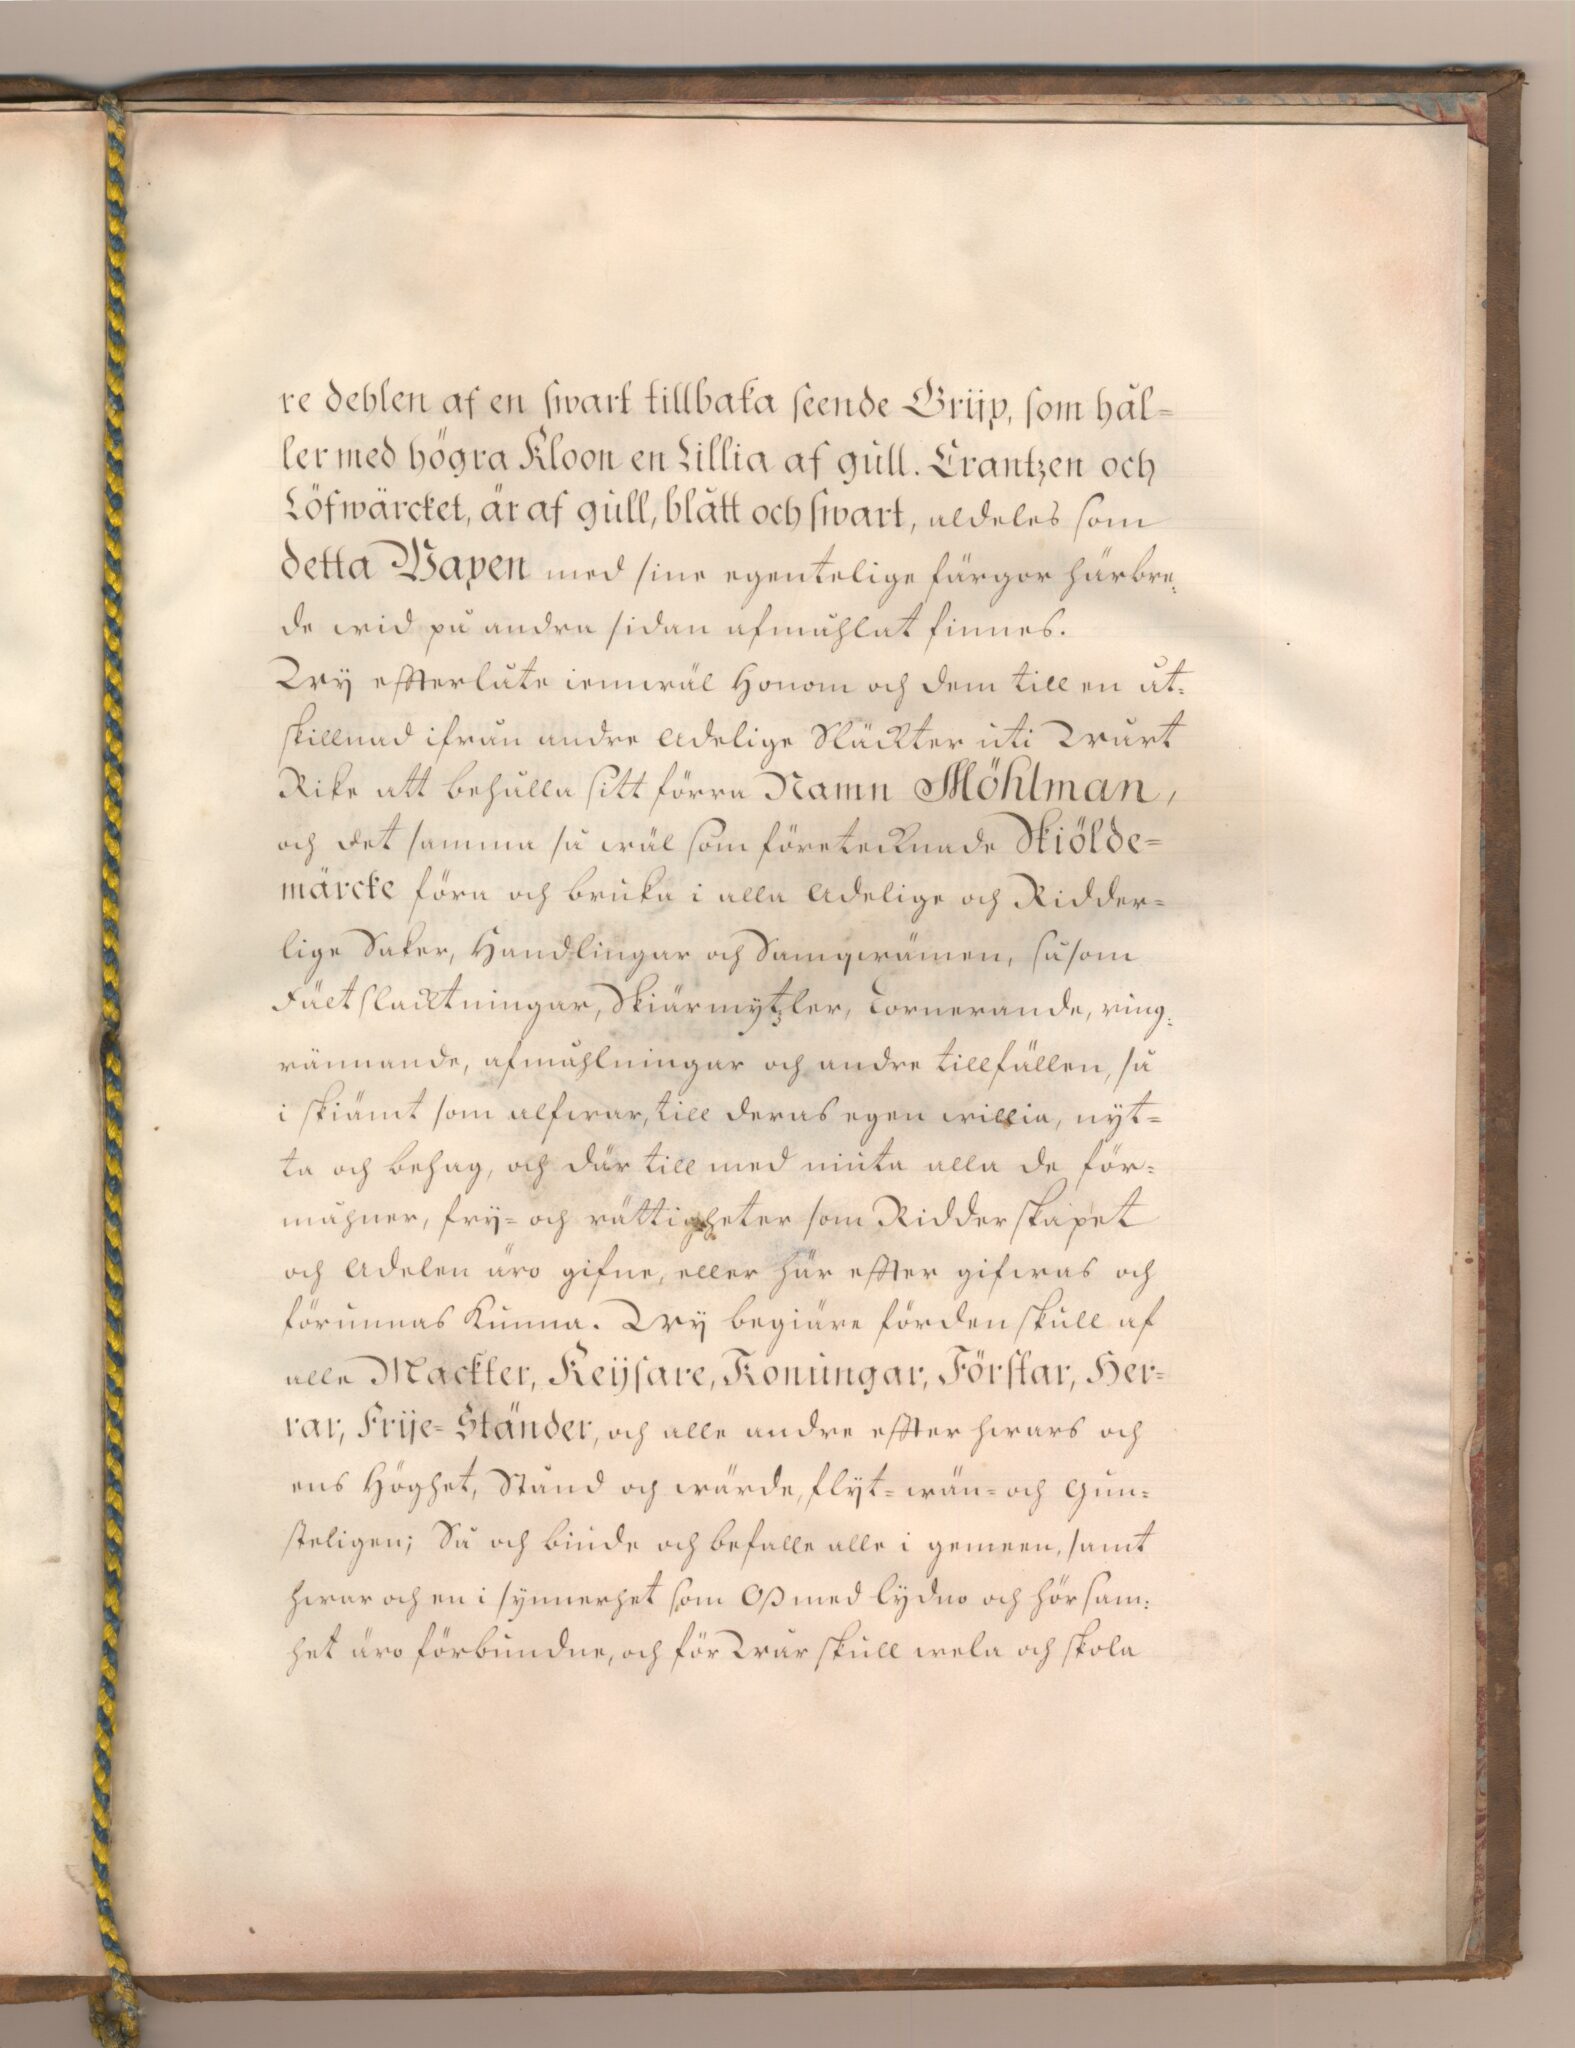 re dehlen af en swart tillbaka seende Grijp, som hål=
ler med högra Kloon en Lillia af gull. Crantzen och
Löfwärcket, är af gull, blått och swart, aldeles som
detta Wapen med sine egentelige färgor härbre=
de wid på andra sidan afmåhlat finnes.
Wij effterlåte iemwäl Honom och dem till en åt=
skillnad ifrån andre Adelige Släckter uti Wårt
Rike att behålla sitt förra Namn Möhlman,
och det samma så wäl som företecknade Skiölde=
märcke föra och bruka i alla Adelige och Ridder=
lige Saker, Handlingar och Samqwämen, såsom
Fäetslacktningar, Skiärmytzler, Tornerande, ring=
rännande, afmåhlningar och andre tillfällen, så
i skiämt som alfwar, till deras egen willia, nyt=
ta och behag, och där till med niuta alla de för=
måhner, frij= och rättigheter som Ridderskapet
och Adelen äro gifne, eller här effter gifwas och
förunnas kunna. Wij begiäre fördenskull af
alle Mackter, Keijsare, Konungar, Förstar, Her=
rar, Frije=Ständer, och alle andre effter hwars och
ens Höghet, Stånd och wärde, flijt= wän= och Gun=
steligen; Så och biude och befalle alle i gemeen, samt
hwar och en i synnerhet som Oß med lydno och hörsam=
het äro förbundne, och för Wår skull wela och skola